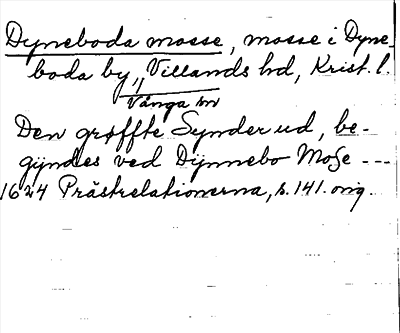 Dyneboda mosse, mosse i Dyne-
boda by, Villands hd, Krist. l.
Vånga sn
Den grøffte Synder ud, be-
gyndes ved Dÿnnebo Mose ---
1624 Prästrelationerna, s. 141. orig.